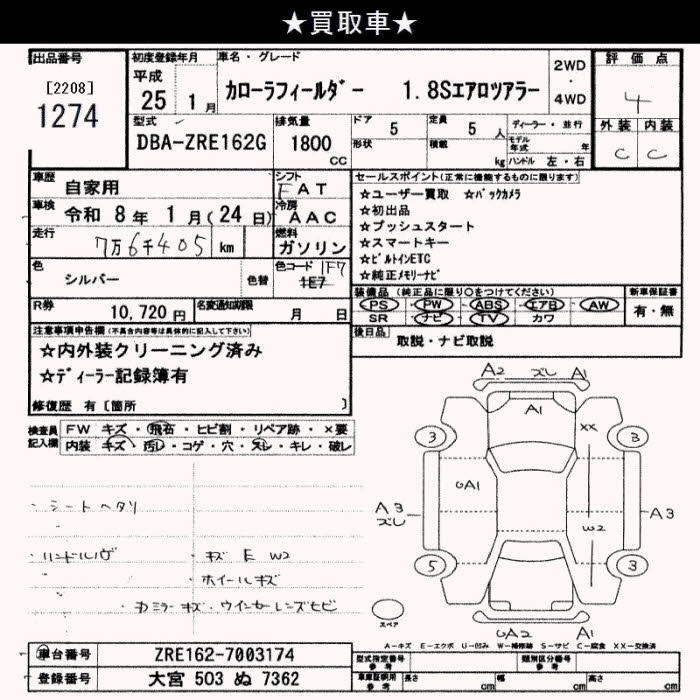 ★買取車★
出品番号 [2208] 1274
初度登録年月 平成 25年 1月
車名・グレード カローラフィールダー 1.8Sエアロツアラー
2WD・4WD
評価点 4
外装 C 内装 C
型式 DBA-ZRE162G
排気量 1800 CC
ドア 5 形状
定員 5人 積載 kg
ディーラー・並行
モデル年式 年
ハンドル 左・右
車歴 自家用
シフト FAT
車検 令和 8年 1月(24日)
冷房 AAC
走行 7万6千405 km
燃料 ガソリン
色 シルバー 色替
色コード 1F7 1E7
R券 10,720円
名変通知期限 月 日
セールスポイント(正常に機能するものに限ります)
☆ユーザー買取 ☆バックカメラ
☆初出品
☆プッシュスタート
☆スマートキー
☆ビルトインETC
☆純正メモリーナビ
装備品(純正品に限り○をつけてください)
PS PW ABS エアB AW
SR ナビ TV カワ
新車保証書 有・無
後日品 取説・ナビ取説
注意事項申告欄(不具合内容等は具体的に記入して下さい)
☆内外装クリーニング済み
☆ディーラー記録簿有
修復歴 有〔箇所 〕
検査員記入欄
FW キズ・飛石・ヒビ割・リペア跡・×要
内装 キズ・汚れ・コゲ・穴・スレ・キレ・破レ
・シートヘタリ
・ハンドルハゲ
・キズ E W2
・ホイールキズ
・カミラーキズ・ウインカーレンズヒビ
A2 ズレ A1
A1
XX
3 3
UA1
A3 ズレ
A3
W2
5 3
スペア
UA2 A1
A-キズ E-エクボ U-凹み W-補修跡 S-サビ C-腐食 XX-交換済
車台番号 ZRE162-7003174
登録番号 大宮 503 ぬ 7362
型式指定番号 参考
類別区分番号 参考
車庫証明用 参考 長さ cm 幅 cm 高さ cm